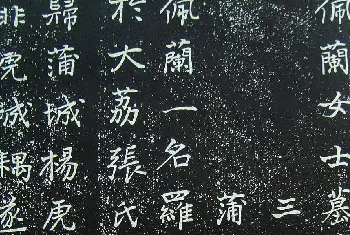 佩蘭女士慕
三
蒲
佩蘭一名羅
於大荔張氏
歸蒲城楊虎
非虎城耦遂